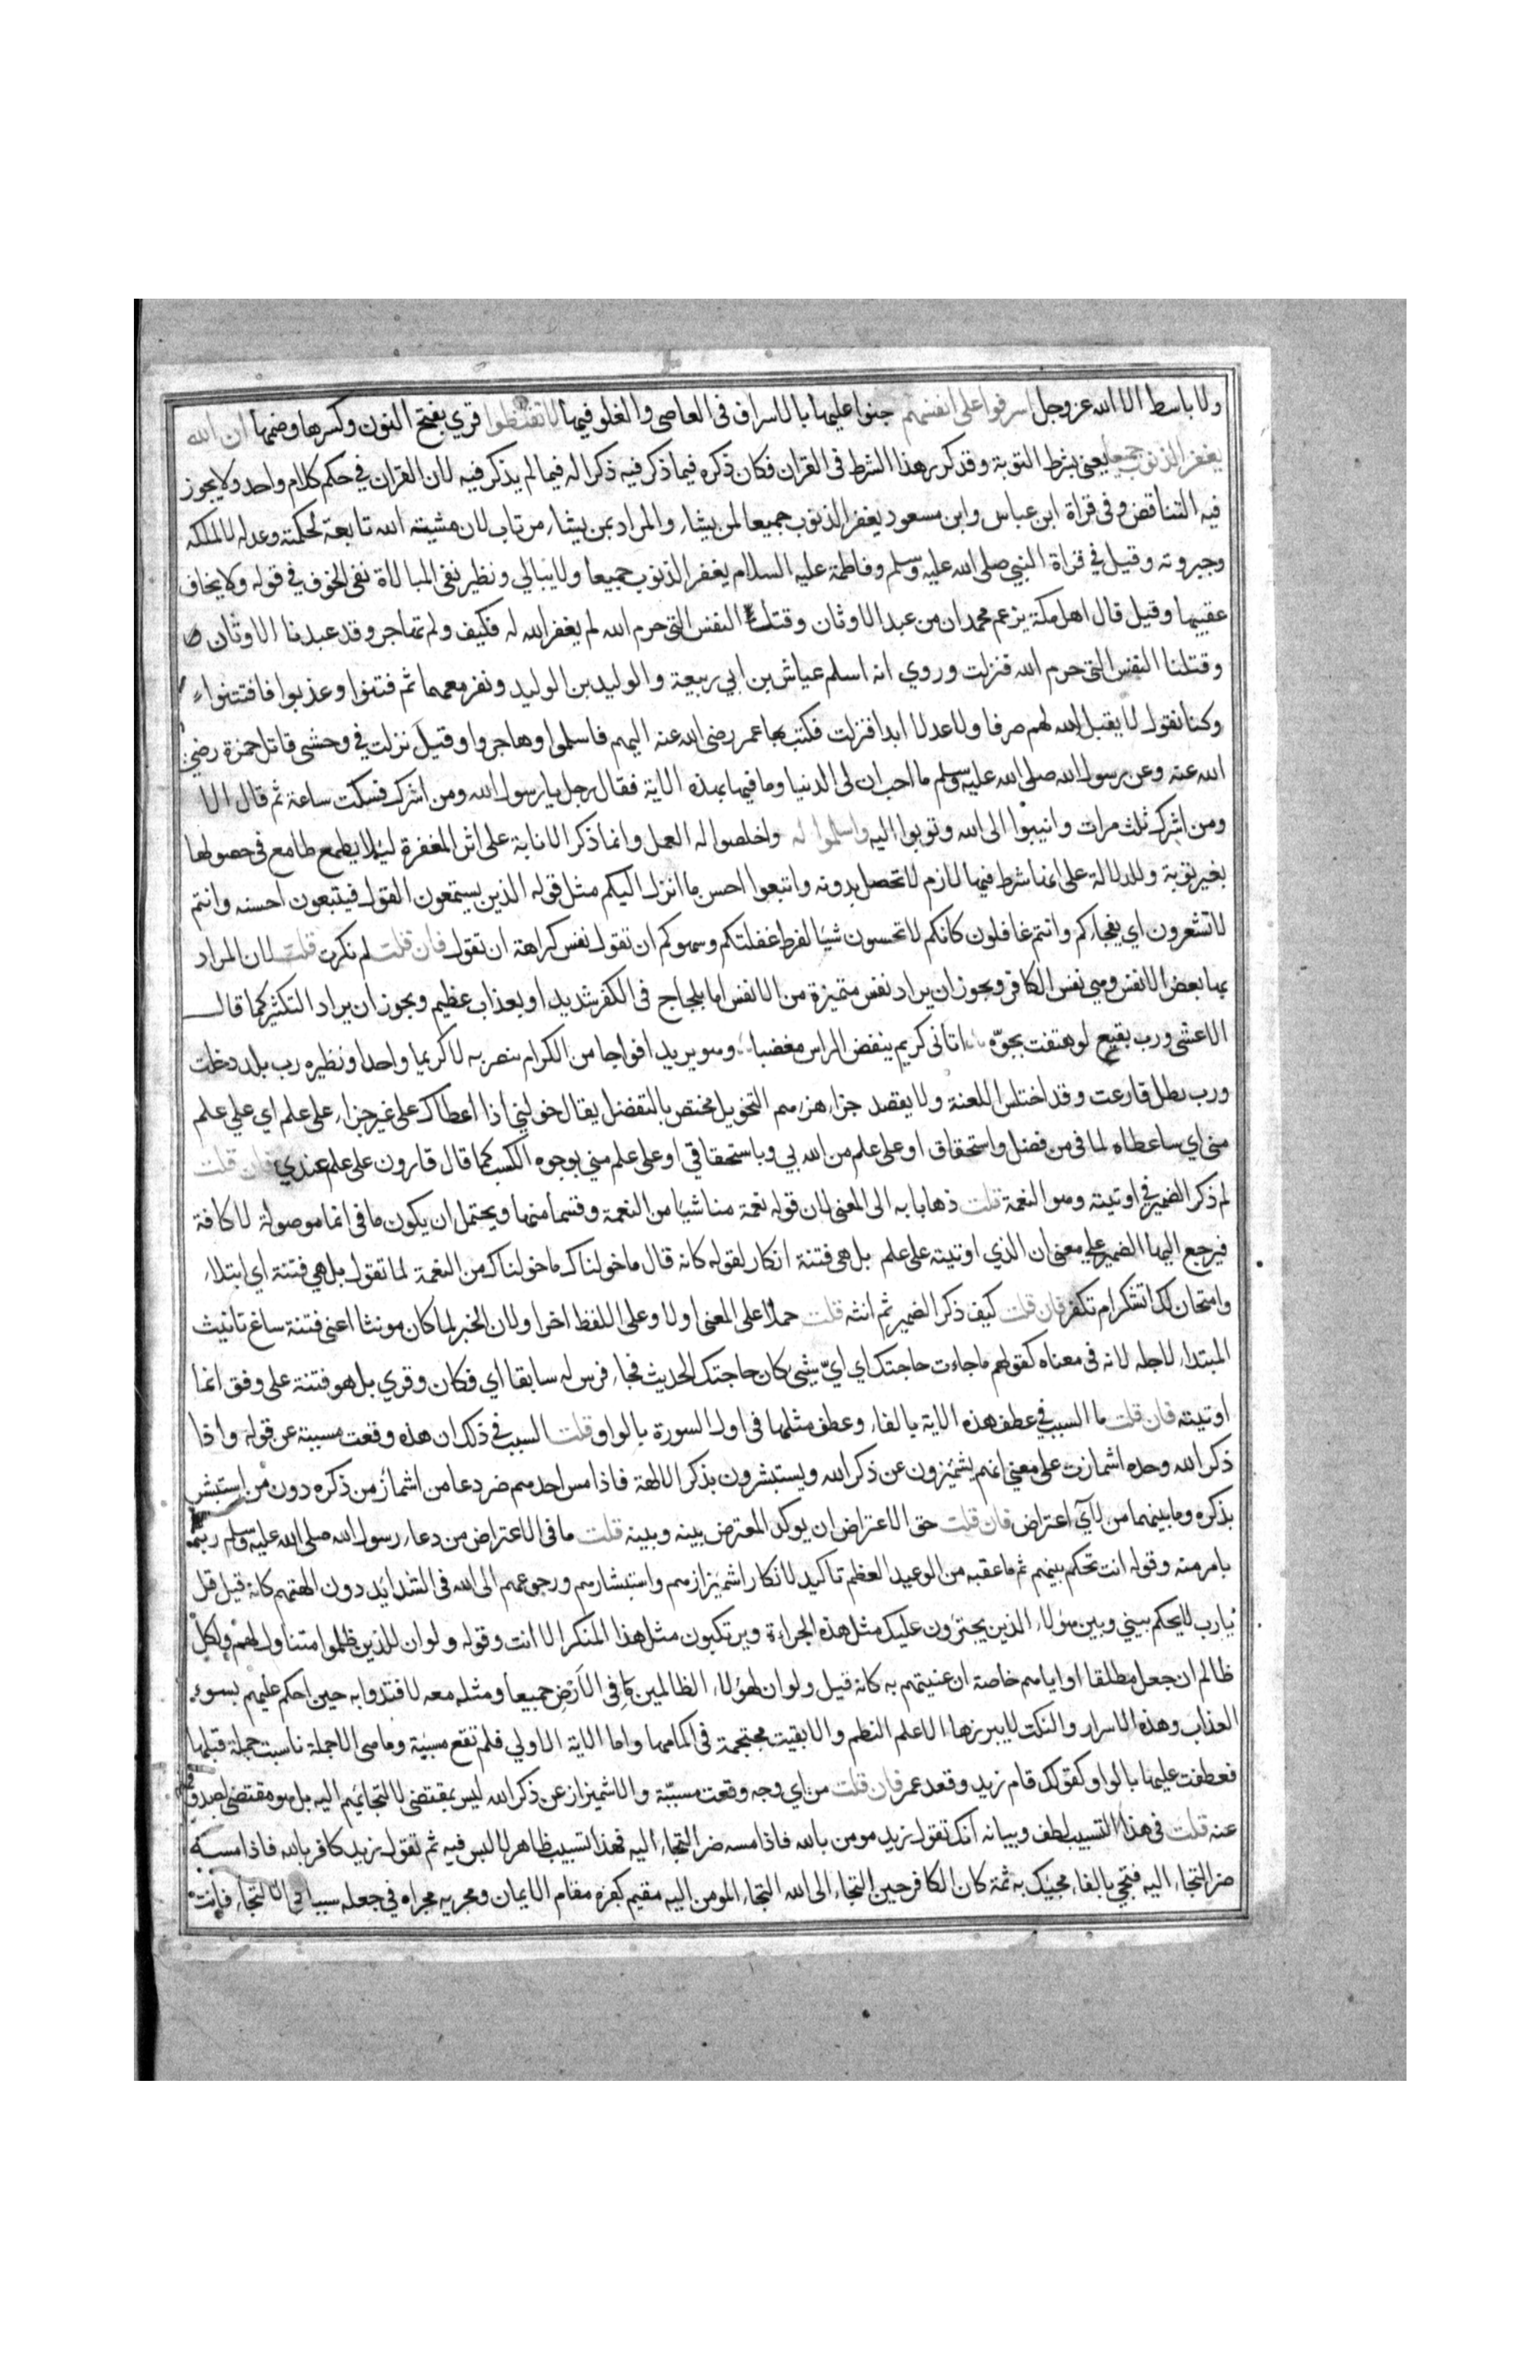 ولا باسط الا الله عز وجل اسرفوا على انفسهم جنوا عليها بالاسراف فى المعاصى والغلو فيها لا تقنطوا قري بفتح النون وكسرها وضمها ان الله
يغفر الذنوب جميعا يعنى بشرط التوبة وقد كرر هذا الشرط فى القران فكان ذكره فيما ذكر فيه ذكرا له فيما لم يذكر فيه لان القران في حكم كلام واحد ولا يجوز
فيه التناقض وفى قراة ابن عباس وابن مسعود يغفر الذنوب جميعا لمن يشاء والمراد بمن يشاء من تاب لان مشيته الله تابعة لحكمته وعدله لا لملكه
وجبروته وقيل في قراة النبي صلى الله عليه وسلم وفاطمة عليه السلام يغفر الذنوب جميعا ولا يبالي ونظير نفى المبالاة نفى الخوف في قوله ولا يخاف
عقبيها وقيل قال اهل مكة يزعم محمد ان من عبد الاوثان وقتل النفس التى حرم الله لم يغفر الله له فكيف ولم نهاجر وقد عبدنا الاوثان
وقتلنا النفس التى حرم الله فنزلت وروي انه اسلم عياش بن ابي ربيعة والوليد بن الوليد ونفر معهما ثم فتنوا وعذبوا فافتتنوا
وكنا نقول لا يقبل الله لهم صرفا ولا عدلا ابدا فنزلت فكتب بها عمر رضى الله عنه اليهم فاسلموا وهاجروا وقيل نزلت في وحشى قاتل حمزة رضي
الله عنه وعن رسول الله صلى الله عليه وسلم ما احب ان لى الدنيا وما فيها بهذه الاية فقال رجل يا رسول الله ومن اشرك فسكت ساعة ثم قال الا
ومن اشرك ثلث مرات وانيبوا الى الله وتوبوا اليه واسلموا له واخلصوا له العمل وانما ذكر الانابة على اثر المغفرة ليلا يطمع طامع فى حصولها
بغير توبة وللدلالة على انها شرط فيها لازم لا تحصل بدونه واتبعوا احسن ما انزل اليكم مثل قوله الذين يستمعون القول فيتبعون احسنه وانتم
لا تشعرون اي يفجاكم وانتم غافلون كانكم لا تحسون شيا لفرط غفلتكم وسهوكم ان تقول نفس كراهة ان تقول فان قلت لم نكرت قلت لان المراد
بها بعض الانفس وهي نفس الكافر ويجوز ان يراد نفس متميزة من الانفس اما بلجاج فى الكفر شديد او بعذاب عظيم ويجوز ان يراد التكثير كما قال
الاعشى ورب بقيع لو هتفت بجوّه اتانى كريم ينفض الراس مغضبا وهو يريد افواجا من الكرام ينصر به لا كريما واحدا ونظيره رب بلد دخلت
ورب بطل قارعت وقد اختلس اللعنة ولا يقصد جزاء التخويل مختص بالتفضل يقال خولني اذا اعطاك على غير جزاء على علم اي علي علم
منى اي ساعطاه لما فى من فضل واستحقاق او على علم من الله بي وباستحقاقي او على علم مني بوجوه الكسب كما قال قارون على علم عندي فان قلت
لم ذكر الضمير في اوتيته وهو النعمة قلت ذهابا به الى المعنى لان قوله نعمة منا شيا من النعمة وقسما منها ويحتمل ان يكون ما فى انما موصولة لا كافة
فيرجع اليها الضمير علي معنى ان الذي اوتيته على علم بل هى فتنة انكار لقوله كانه قال ما خولناك ما خولناك من النعمة لما تقول بل هي فتنة اي ابتلاء
وامتحان لك اتشكر ام تكفر فان قلت كيف ذكر الضمير ثم انثه قلت حملا على المعنى اولا وعلى اللفظ اخرا ولان الخبر لما كان مونثا اعنى فتنة ساغ تانيث
المبتدا لاجله لانه فى معناه كقولهم ما جاءت حاجتك اي ايّ شيى كان حاجتك الحديث فجاء فرس له سابقا اي فكان وقري بل هو فتنة على وفق انما
اوتيته فان قلت ما السبب في عطف هذه الاية بالفاء وعطف مثلها فى اول السورة بالواو قلت السبب في ذلك ان هذه وقعت مسببة عن قوله واذا
ذكر الله وحده اشمازت على معنى انهم يشمئزون عن ذكر الله ويستبشرون بذكر الالهة فاذا مس احدهم ضر دعا من اشماز من ذكره دون من استبشر
بذكره وما بينهما من الاي اعتراض فان قلت حق الاعتراض ان يوكد المعترض بينه وبينه قلت ما فى الاعتراض من دعاء رسول الله صلى الله عليه وسلم ربه
بامر منه وقوله انت تحكم بينهم ثم ما عقبه من الوعيد العظم تاكيد لانكار اشميزازهم واستبشارهم ورجوعهم الى الله فى الشدايد دون الهتهم كانه قيل قل
يا رب لا يحكم بيني وبين هولاء الذين يجترون عليك مثل هذه الجراءة ويرتكبون مثل هذا المنكر الا انت وقوله ولو ان للذين ظلموا متناول لهم ولكل
ظالم ان جعل مطلقا او اياهم خاصة ان عنيتهم به كانه قيل ولو ان لهولاء الظالمين ما فى الارض جميعا ومثله معه لافتدوا به حين احكم عليهم بسوء
العذاب وهذه الاسرار والنكت لا يبرزها الا علم النظم والا بقيت محتجمة فى اكمامها واما الاية الاولي فلم تقع مسببة وما هى الا جملة ناسبت جملة قبلها
فعطفت عليها بالواو كقولك قام زيد وقعد عمر فان قلت من اي وجه وقعت مسببة والاشميزاز عن ذكر الله ليس بمقتضى لالتجايهم اليه بل هو مقتضى لصدوفهم
عنه قلت فى هذا التسبيب لطف وبيانه انك تقول زيد مومن بالله فاذا مسه ضر التجاء اليه فهذا تسبيب ظاهر لا لبس فيه ثم تقول زيد كافر بالله فاذا مسه
ضر التجاء اليه فتجي بالفاء مجيك به ثمة كان الكافر حين التجاء الى الله التجاء المومن اليه مقيم كفره مقام الايمان ومجريه مجراه في جعله سببا فى الالتجاء فانت